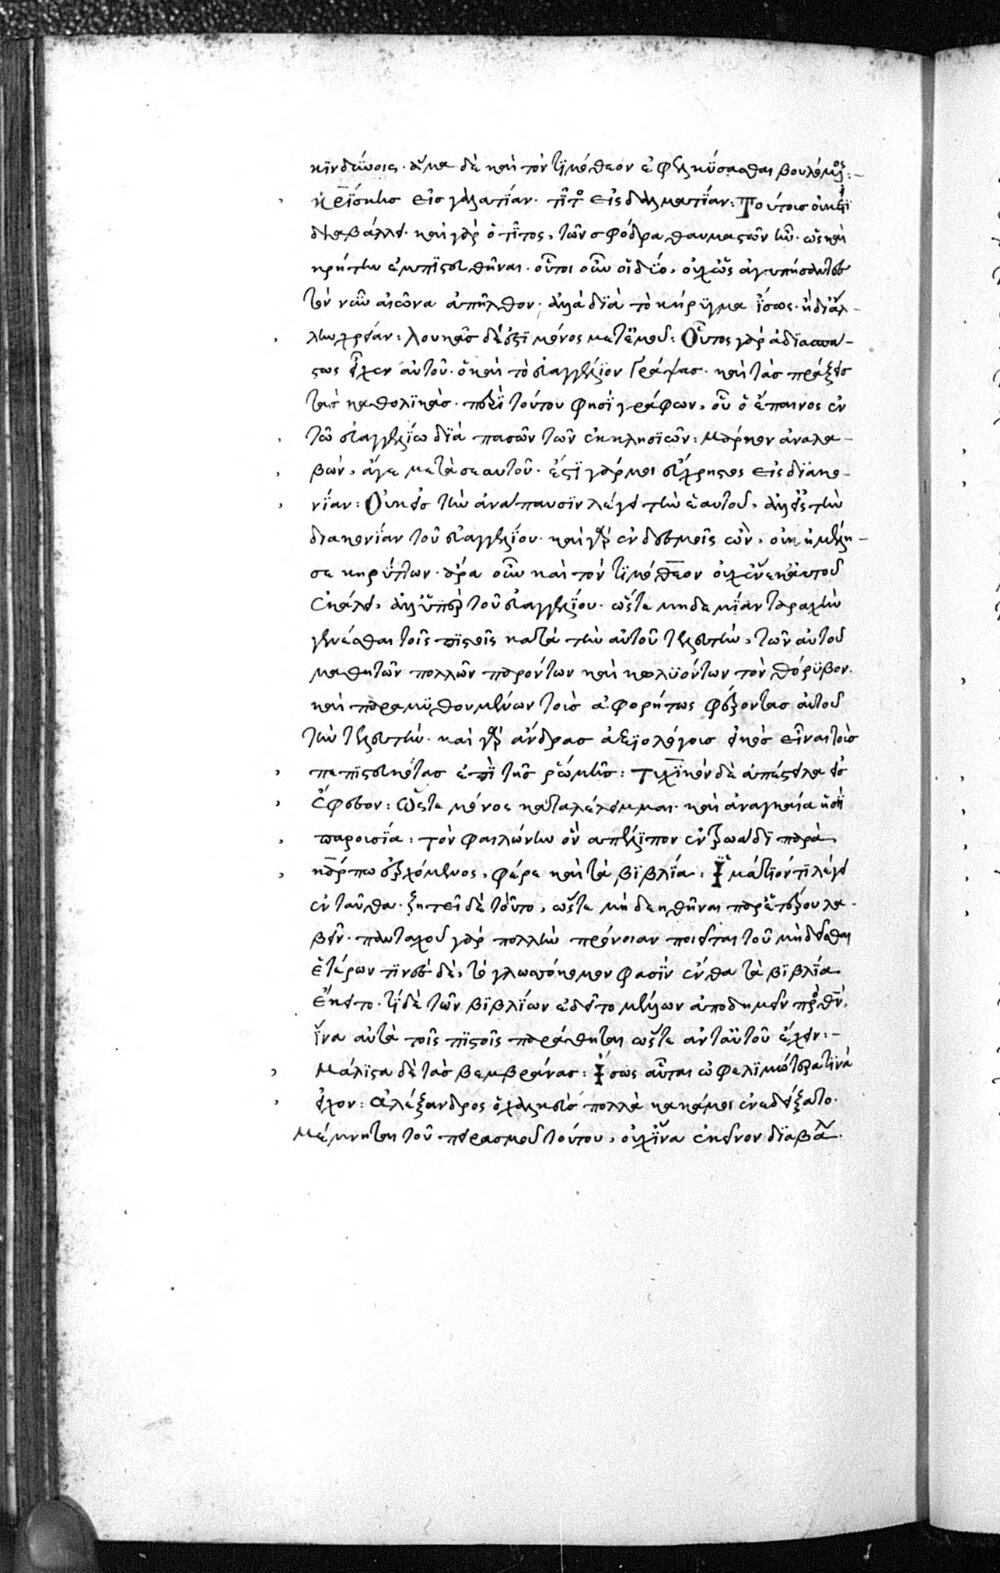 κινδύνοις· ἅμα δὲ καὶ τὸν τιμόθεον ἐφελκύσασθαι βουλόμενος:–
κρίσκης εἰς γαλατίαν· τίτος εἰς δαλματίαν: Τούτοις οὐκέτι
διαβάλλει· καὶ γὰρ ὁ τίτος, τῶν σφόδρα θαυμαστῶν ἦν· ὡς καὶ
κρήτην ἐμπιστευθῆναι· οὗτοι οὖν οἱ δύο, οὐχ ὡς ἀγαπήσαντες
τὸν νῦν αἰῶνα ἀπῆλθον· ἀλλὰ διὰ τὸ κήρυγμα ἴσως· ἢ δι' ἄλ–
λην χρείαν: λουκᾶς δέ ἐστι μόνος μετ' ἐμοῦ: Οὗτος γὰρ ἀδιασπά–
στως εἶχεν αὐτοῦ· ὁ καὶ τὸ εὐαγγέλιον γράψας· καὶ τὰς πράξεις
τὰς καθολικάς· περὶ τούτου φησὶ γράφων, οὗ ὁ ἔπαινος ἐν
τῶ εὐαγγελίω διὰ πασῶν τῶν ἐκκλησιῶν: Μάρκον ἀναλα–
βών, ἄγε μετὰ σεαυτοῦ· ἔστι γάρ μοι εὔχρηστος εἰς διακο–
νίαν: Οὐκ εἰς τὴν ἀνάπαυσιν λέγει τὴν ἑαυτοῦ, ἀλλ' εἰς τὴν
διακονίαν τοῦ εὐαγγελίου· καὶ γὰρ ἐν δεσμοῖς ὢν, οὐκ ἠμέλη–
σε κηρύττων· ἄρα οὖν καὶ τὸν τιμόθεον οὐχ ἕνεκα αὐτοῦ
ἐκάλει, ἀλλ' ὑπὲρ τοῦ εὐαγγελίου· ὥστε μηδεμίαν ταραχὴν
γενέσθαι τοῖς πιστοῖς κατὰ τὴν αὐτοῦ τελευτὴν, τῶν αὐτοῦ
μαθητῶν πολλῶν παρόντων καὶ κωλυόντων τὸν θόρυβον·
καὶ παραμυθουμένων τοὺς ἀφορήτως φέροντας αὐτοῦ
τὴν τελευτήν· καὶ γὰρ ἄνδρας ἀξιολόγους εἰκὸς εἶναι τοὺς
πεπιστευκότας ἐπὶ τῆς ῥώμης: Τυχικὸν δὲ ἀπέστειλα εἰς
ἔφεσον: Ὥστε μόνος καταλέλειμμαι· καὶ ἀναγκαία σου ἡ
παρουσία: Τὸν φαιλώνην ὃν ἀπέλιπον ἐν τρωάδι παρὰ
κάρπω ἐρχόμενος, φέρε καὶ τὰ βιβλία: Ἱμάτιόν τι λέγει
ἐνταῦθα· ζητεῖ δὲ τοῦτο, ὥστε μὴ δεηθῆναι παρ' ἑτέρου λα–
βεῖν· πανταχοῦ γὰρ πολλὴν πρόνοιαν ποιεῖται τοῦ μὴ δεῖσθαι
ἑτέρων· τινὲς δὲ, τὸ γλωσσόκομον φασὶν ἔνθα τὰ βιβλία
ἔκειτο· τί δὲ τῶν βιβλίων ἐδεῖτο μέλλων ἀποδημεῖν πρὸς θεόν·
ἵνα αὐτὰ τοῖς πιστοῖς παράθηται ὥστε ἀντ' αὐτοῦ ἔχειν:–
Μάλιστα δὲ τὰς βεμβράνας: Ἴσως αὗται ὠφελιμώτερα τινὰ
εἶχον: Ἀλέξανδρος ὁ χαλκεὺς πολλὰ κακά μοι ἐνεδείξατο·
Μέμνηται τοῦ πειρασμοῦ τούτου, οὐχ ἵνα ἐκεῖνον διαβάλη·